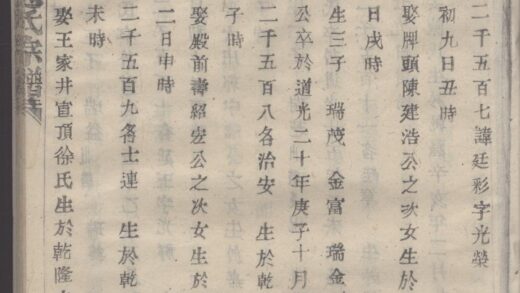 二千五百七諱廷彩字光榮
初九日丑時
娶牌頭陳建浩公之次女生於
日戌時
生三子 瑞茂 金富 瑞金
公卒於道光二十年庚子十月
二千五百八名治安 生於乾
子時
娶殿前壽紹宏公之次女生於
二日申時
二千五百九名士連乙 生於乾
未時
娶王家井宣頂徐氏生於乾隆
氏宗譜